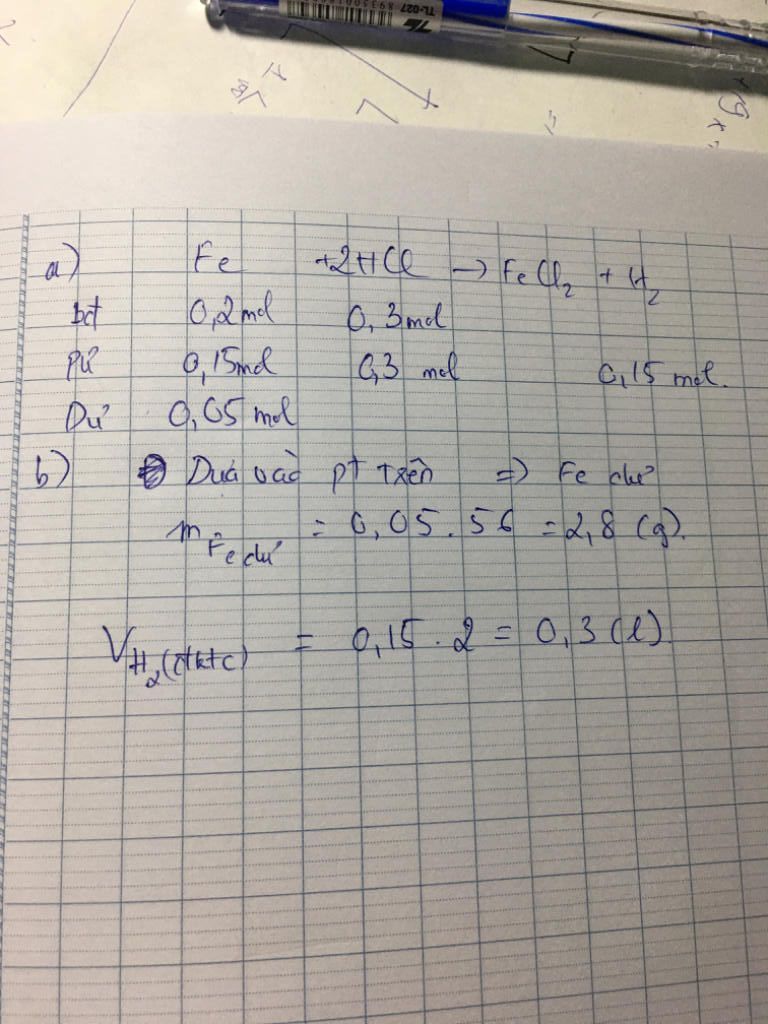 TL-027
a) Fe +2HCl → FeCl₂ + H₂
bđ 0,2mol 0,3mol
pứ 0,15mol 0,3 mol 0,15 mol.
Dư 0,05 mol
b) Dưa vào pt trên => Fe dư
m Fe dư = 0,05.56 = 2,8 (g).
V H₂(đktc) = 0,15.2 = 0,3 (l)